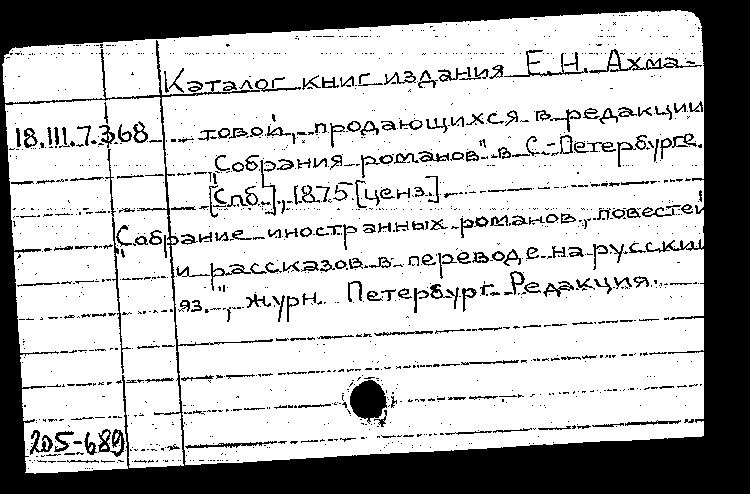 Каталог книг издания Е.Н. Ахма-
18.III.7.368 товой, продающихся в редакции
"Собрания романов" в С.-Петербурге.
[Спб.], 1875 [ценз.].
"Собрание иностранных романов, повестей
и рассказов в переводе на русский
яз.", журн. Петербург. Редакция.
205-689